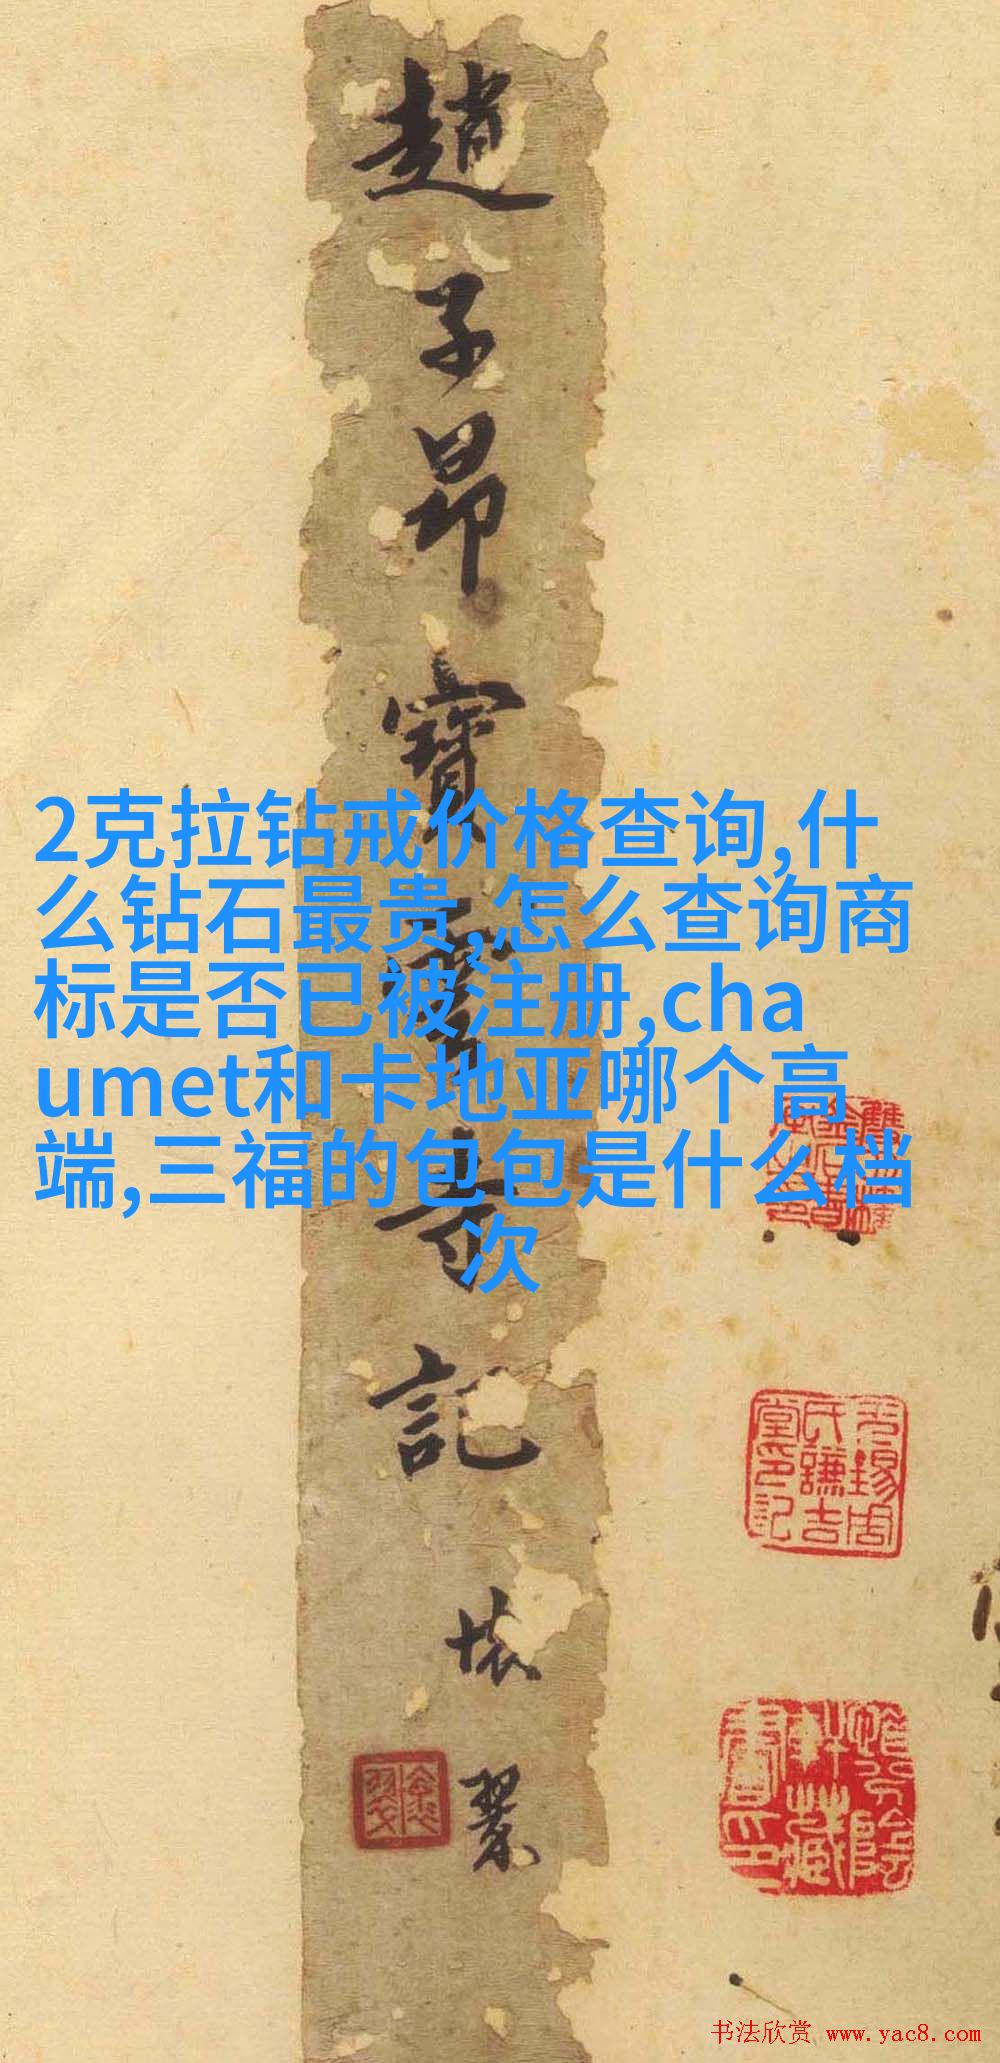 趙子昂寶雲寺記
懐
2克拉钻戒价格查询,什
么钻石最贵,怎么查询商
标是否已被注册,cha
umet和卡地亚哪个高
端,三福的包包是什么档
次
无錫周
氏謙吉
堂印記
书法欣赏 www.yac8.com